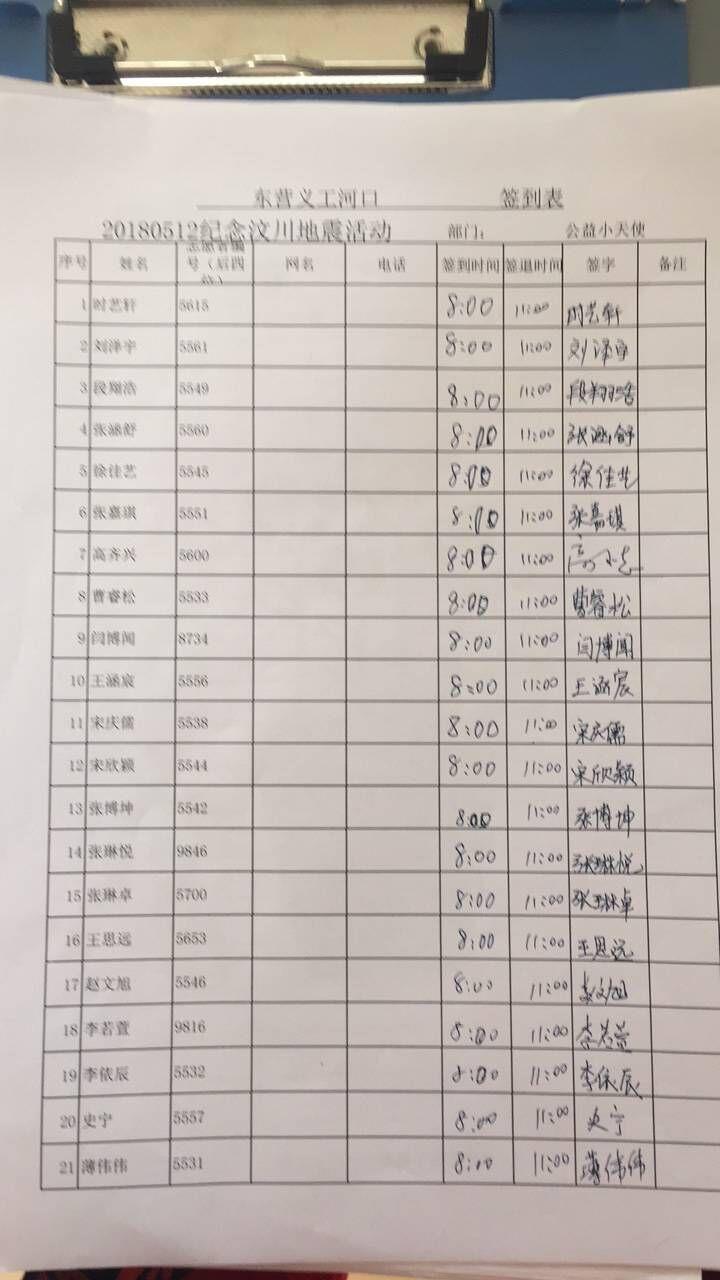 东营义工河口 签到表
20180512纪念汶川地震活动 部门: 公益小天使
序号 姓名 志愿者编号（后四位） 网名 电话 签到时间 签退时间 签字 备注
1 时艺轩 5615 8:00 11:00 时艺轩
2 刘泽宇 5561 8:00 11:00 刘泽宇
3 段翔浩 5549 8:00 11:00 段翔浩
4 张涵舒 5560 8:00 11:00 张涵舒
5 徐佳艺 5545 8:00 11:00 徐佳艺
6 张嘉琪 5551 8:00 11:00 张嘉琪
7 高齐兴 5600 8:00 11:00
8 曹睿松 5533 8:00 11:00 曹睿松
9 闫博闻 8734 8:00 11:00 闫博闻
10 王涵宸 5556 8:00 11:00 王涵宸
11 宋庆儒 5538 8:00 11:00 宋庆儒
12 宋欣颖 5544 8:00 11:00 宋欣颖
13 张博坤 5542 8:00 11:00 张博坤
14 张琳悦 9846 8:00 11:00 张琳悦
15 张琳卓 5700 8:00 11:00 张琳卓
16 王思远 5653 8:00 11:00 王思远
17 赵文旭 5546 8:00 11:00 赵文旭
18 李若萱 9816 8:00 11:00 李若萱
19 李依辰 5532 8:00 11:00 李依辰
20 史宁 5557 8:00 11:00 史宁
21 薄伟伟 5531 8:00 11:00 薄伟伟